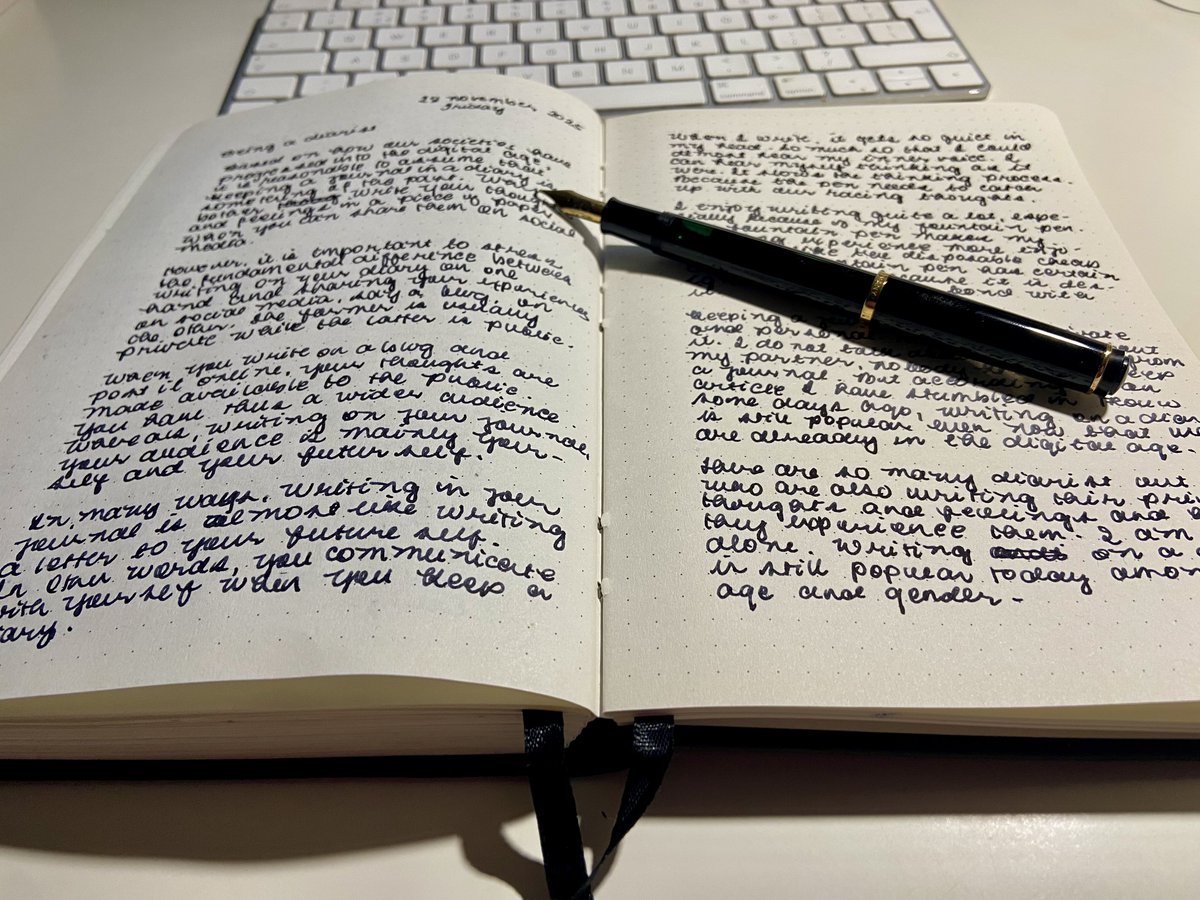 28 november 2025
Friday
Being a diarist
Based on how our societies have
progressed into the digital age,
it is reasonable to assume that
keeping a journal or a diary is
something of the past. Why
bother write your thoughts
and feelings in a piece of paper
when you can share them on social
media.
However, it is important to stress
the fundamental difference between
writing on your diary on one
hand and sharing your experience
on social media, say a blog, on
the other. The former is usually
private while the latter is public.
When you write on a blog and
post it online, your thoughts are
made available to the public.
You have thus a wider audience.
Whereas, writing on your journal,
your audience is mainly your-
self and your future self.
In many ways, writing in your
journal is almost like writing
a letter to your future self.
In other words, you communicate
with yourself when you keep a
diary.
When I write, it gets so quiet in
my head. So much so that I could
almost hear my inner voice. I
can hear myself thinking as it
were. It slows the thinking process.
Because the pen needs to catch
up with our racing thoughts.
I enjoy writing quite a lot, espe-
cially because of my fountain pen.
fountain pen makes my
experience more enjo-
like the disposable cheap
fountain pen has certain
because it is des-
bond with
it
keeping a private
and personal but
it. I do not talk from
my partner, nobody keep
a journal. But according an
article I have stumbled in
some days ago, writing on a diary
is still popular even now that we
are already in the digital age.
There are so many diarist out
who are also writing their
thoughts and feelings and
they experience them. I am
alone. Writing on a
is still popular today
age and gender.